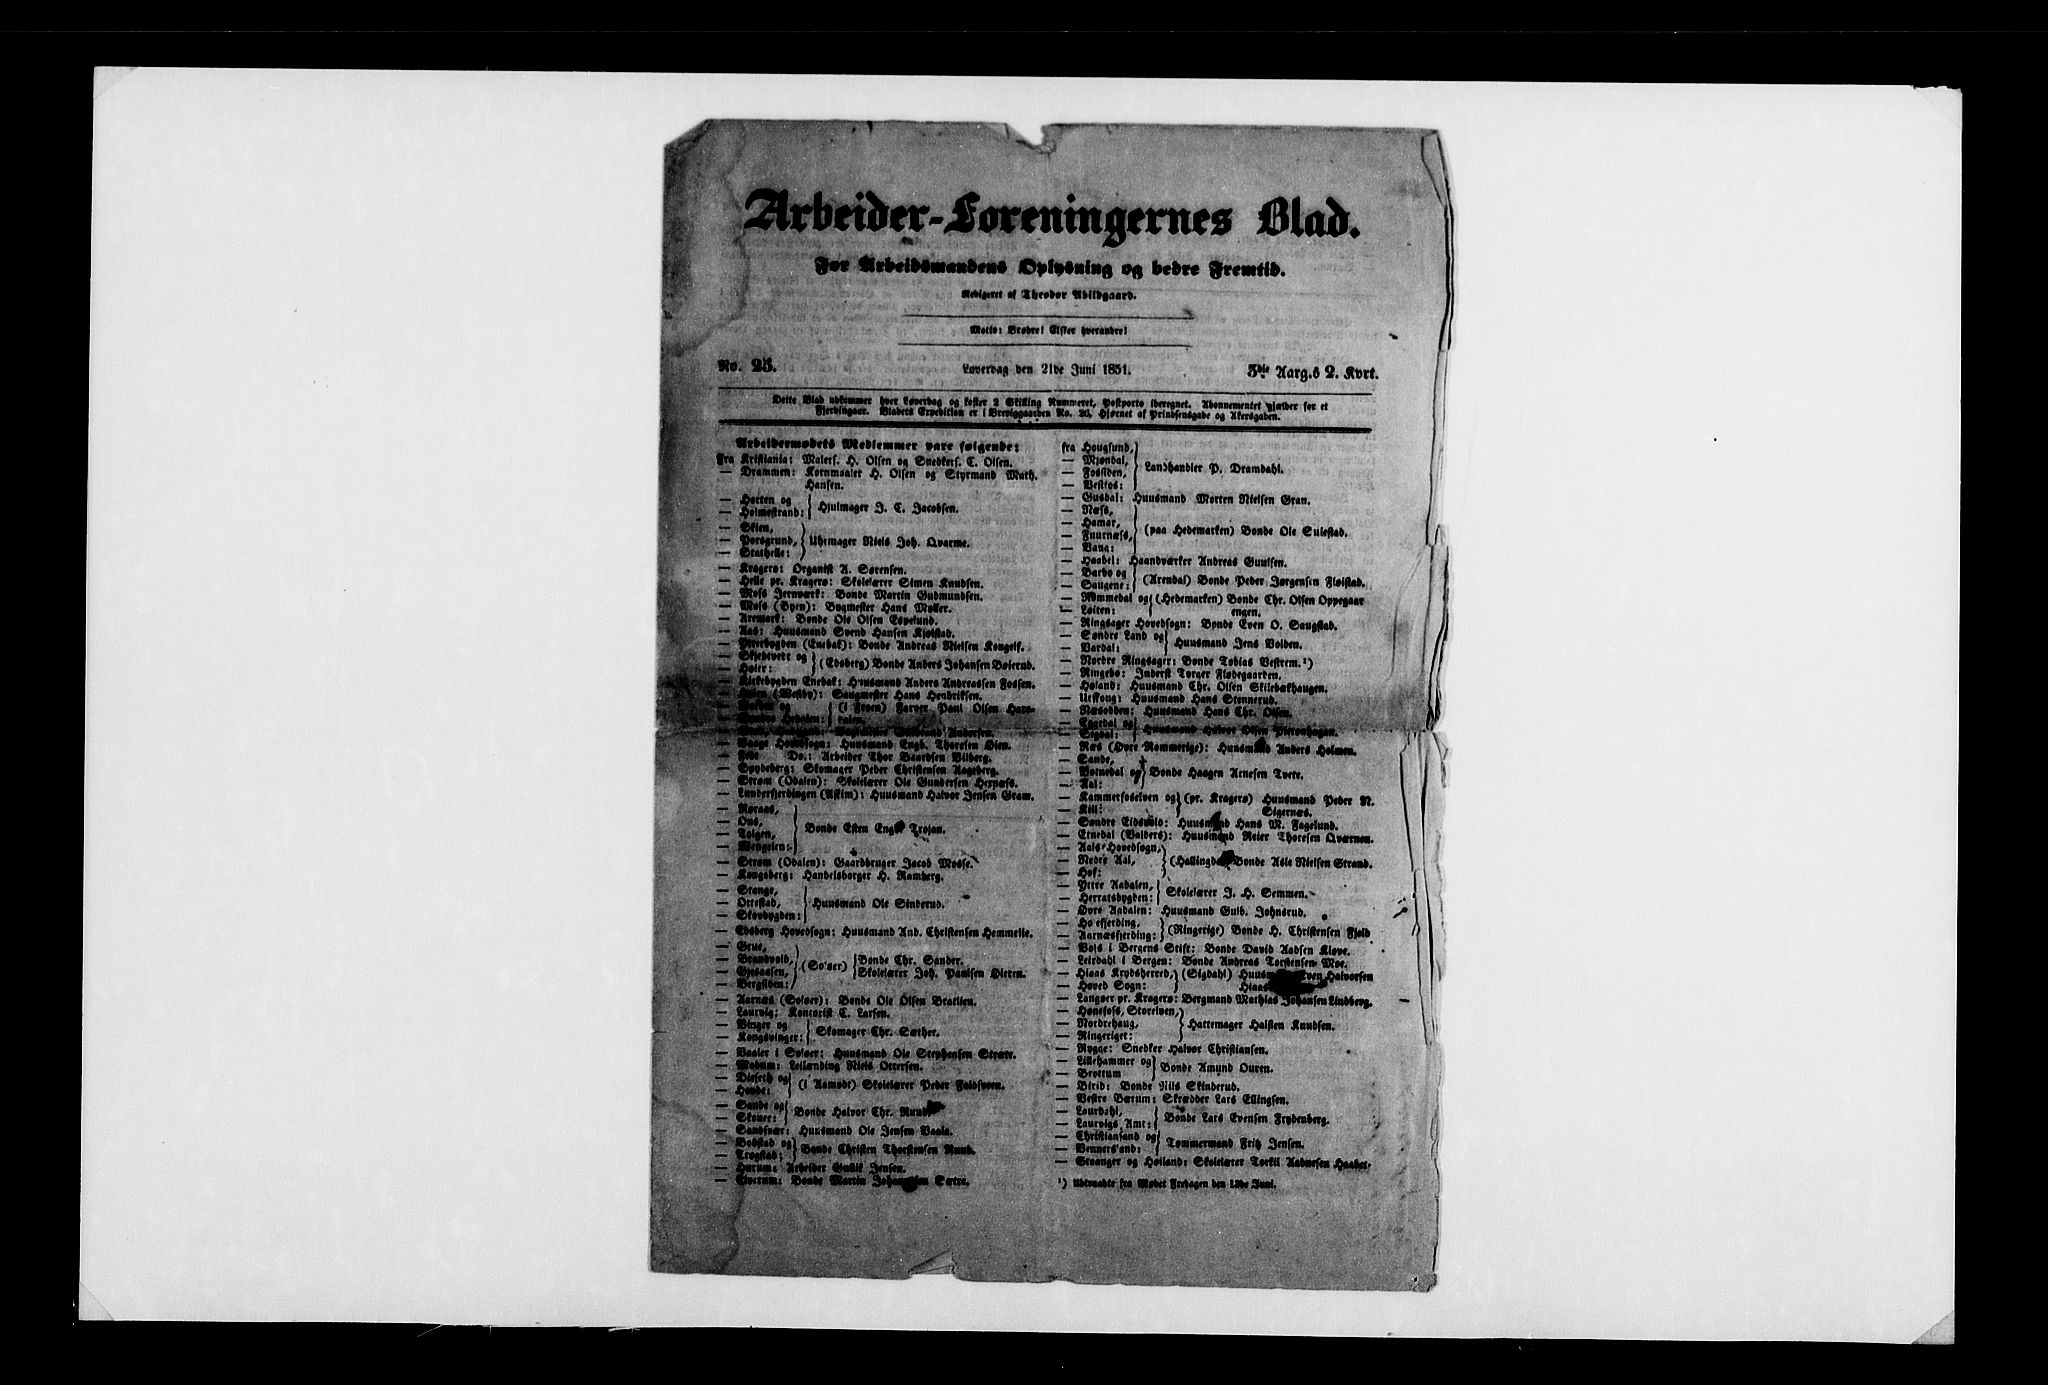 Arbeider-Foreningernes Blad.
For Arbeidsmandens Oplysning og bedre Fremtid.
Redigeret af Theodor Abildgaard.
Motto: Brødre! Elsker hverandre!
No. 25. Løverdag den 21de Juni 1851. 3die Aarg.s 2. Kvrt.
Dette Blad udkommer hver Løverdag og koster 2 Skilling Nummeret, Postporto iberegnet. Abonnementet gjælder for et
Fjerdingaar. Bladets Expedition er i Breviggaarden No. 26, Hjørnet af Prindsensgade og Akersgaden.
Arbeidermødets Medlemmer vare følgende:
fra Kristiania: Malers. H. Olsen og Snedkers. C. Olsen.
— Drammen: Kornmaaler H. Olsen og Styrmand Math.
Hansen.
— Horten og
— Holmestrand: Hjulmager J. C. Jacobsen.
— Skien,
— Porsgrund, Uhrmager Niels Joh. Qvarme.
— Stathelle:
— Kragerø: Organist A. Sørensen.
— Helle pr. Kragerø: Skolelærer Simen Knudsen.
— Moss Jernværk: Bonde Martin Gudmundsen.
— Moss (Byen): Bygmester Hans Møller.
— Aremark: Bonde Ole Olsen Espelund.
— Aas: Huusmand Svend Hansen Kjølstad.
— Ytterbygden (Enebak): Bonde Andreas Nielsen Kongelf.
— Skjebtvedt og
— Høier: (Edsberg) Bonde Anders Johansen Bøierud.
— Kirkebygden Enebak: Huusmand Anders Andreassen Fossen.
— (Westby): Saugmester Hans Hendriksen.
— og (i Froen) Farver Paul Olsen Hars-
— Hedalen: talen.
— Andersen.
— Vaage Hovedsogn: Huusmand Engb. Thoresen Oien.
— Do.: Arbeider Thor Baardsen Vilberg.
— Spydeberg: Skomager Peder Christensen Aageberg.
— Strøm (Odalen): Skolelærer Ole Gundersen Hernæss.
— Lunderfjerdingen (Askim): Huusmand Halvor Jensen Gram.
— Røraas,
— Ous,
— Tolgen, Bonde Esten Trojan.
— Wengelen:
— Strøm (Odalen): Gaardbruger Jacob Mosse.
— Kongsberg: Handelsborger H. Ramberg.
— Stange,
— Ottestad, Huusmand Ole Sinderud.
— Skovbygden:
— Edsberg Hovedsogn: Huusmand And. Christensen Hemmelle.
— Grue,
— Brandvold, (Soløer) Bonde Chr. Sander.
— Gjesaasen, Skolelærer Joh. Paulsen Hieren.
— Bergsiden:
— Aarnæs (Soløer): Bonde Ole Olsen Bratlien.
— Laurvig: Kontorist C. Larsen.
— Vinger og
— Kongsvinger: Skomager Chr. Sæther.
— Vaaler i Soløer: Huusmand Ole Stephensen Stræte.
— Modum: Leilænding Niels Ottersen.
— Diseth og
— Hende: (i Aamodt) Skolelærer Peder Faldsveen.
— Sande og
— Skouer: Bonde Halvor Chr. Rund
— Sandsvær: Huusmand Ole Jensen Vaala.
— Bodstad og
— Trøgstad: Bonde Christen Thorstensen Rund.
— Hurum: Arbeider Gulik Jensen.
— Elverum: Bonde Martin Sætre.
fra Hougsund,
— Mjøndal,
— Fossiden, Landhandler P. Dramdahl.
— Vestfos:
— Gusdal: Huusmand Morten Nielsen Gran.
— Næss,
— Hamar,
— Fuurnæss, (paa Hedemarken) Bonde Ole Sulestad.
— Vang:
— Haabel: Haandværker Andreas Guulsen.
— Barbo og
— Saugene: (Arendal) Bonde Peder Jørgensen Fløistad.
— Rommedal og (Hedemarken) Bonde Chr. Olsen Oppegaar
— Løiten: engen.
— Ringsager Hovedsogn: Bonde Even O. Saugstad.
— Søndre Land og
— Vardal: Huusmand Jens Volden.
— Nordre Ringsager: Bonde Tobias Vestrem.¹)
— Ringebo: Inderst Torger Flødegaarden.
— Høland: Huusmand Chr. Olsen Skilebækhaugen.
— Urskoug: Huusmand Hans Stennerud.
— Næsodden: Huusmand Hans Chr. Olsen.
— Eggedal og
— Sigdal: Huusmand Halvor Olsen
— Næs (Øvre Rommerige): Huusmand Anders Holmen.
— Sande,
— Botnedal og Bonde Haagen Arnesen Tvetr.
— Aal:
— Kammerfoselven og (pr. Kragerø) Huusmand Peder N.
— Kiil: Sigernæs.
— Søndre Eidsvold: Huusmand Hans M. Fagelund.
— Etnedal (Valders): Huusmand Reier Thoresen Qværnen.
— Aals Hovedsogn,
— Nedre Aal, (Hallingdal) Bonde Asle Nielsen Strand.
— Hof:
— Yttre Aadalen,
— Herratsbygden: Skolelærer J. H. Semmen.
— Øvre Aadalen: Huusmand Gulb. Johnsrud.
— Hofsfjerding,
— Aarnæsfjerding: (Ringerige) Bonde H. Christensen Fjeld
— Voss i Bergens Stift: Bonde David Aadsen Kløve.
— Leirdahl i Bergen: Bonde Andreas Torstensen Moe.
— Hiaas Krydsherred, (Sigdahl) Huusmand Even Halvorsen
— Hoved Sogn: Hiaas
— Langøer pr. Kragerø: Bergmand Mathias Johansen Lindberg.
— Hønefoss, Storelven,
— Nordrehaug, Hattemager Halsten Knudsen.
— Ringeriget:
— Rygge: Snedker Halvor Christiansen.
— Lillehammer og
— Brøttum Bonde Amund Ouren.
— Birid: Bonde Nils Skinderud.
— Vestre Bærum: Skrædder Lars Ellingsen.
— Laurdahl,
— Laurvigs Amt: Bonde Lars Evensen Frydenberg.
— Christiansand og
— Vennersland: Tømmermand Fritz Jensen.
— Staanger og Holland: Skolelærer Torkil Aadnesen Haabet.
¹) Udtraadte fra Mødet Fredagen den 13de Juni.